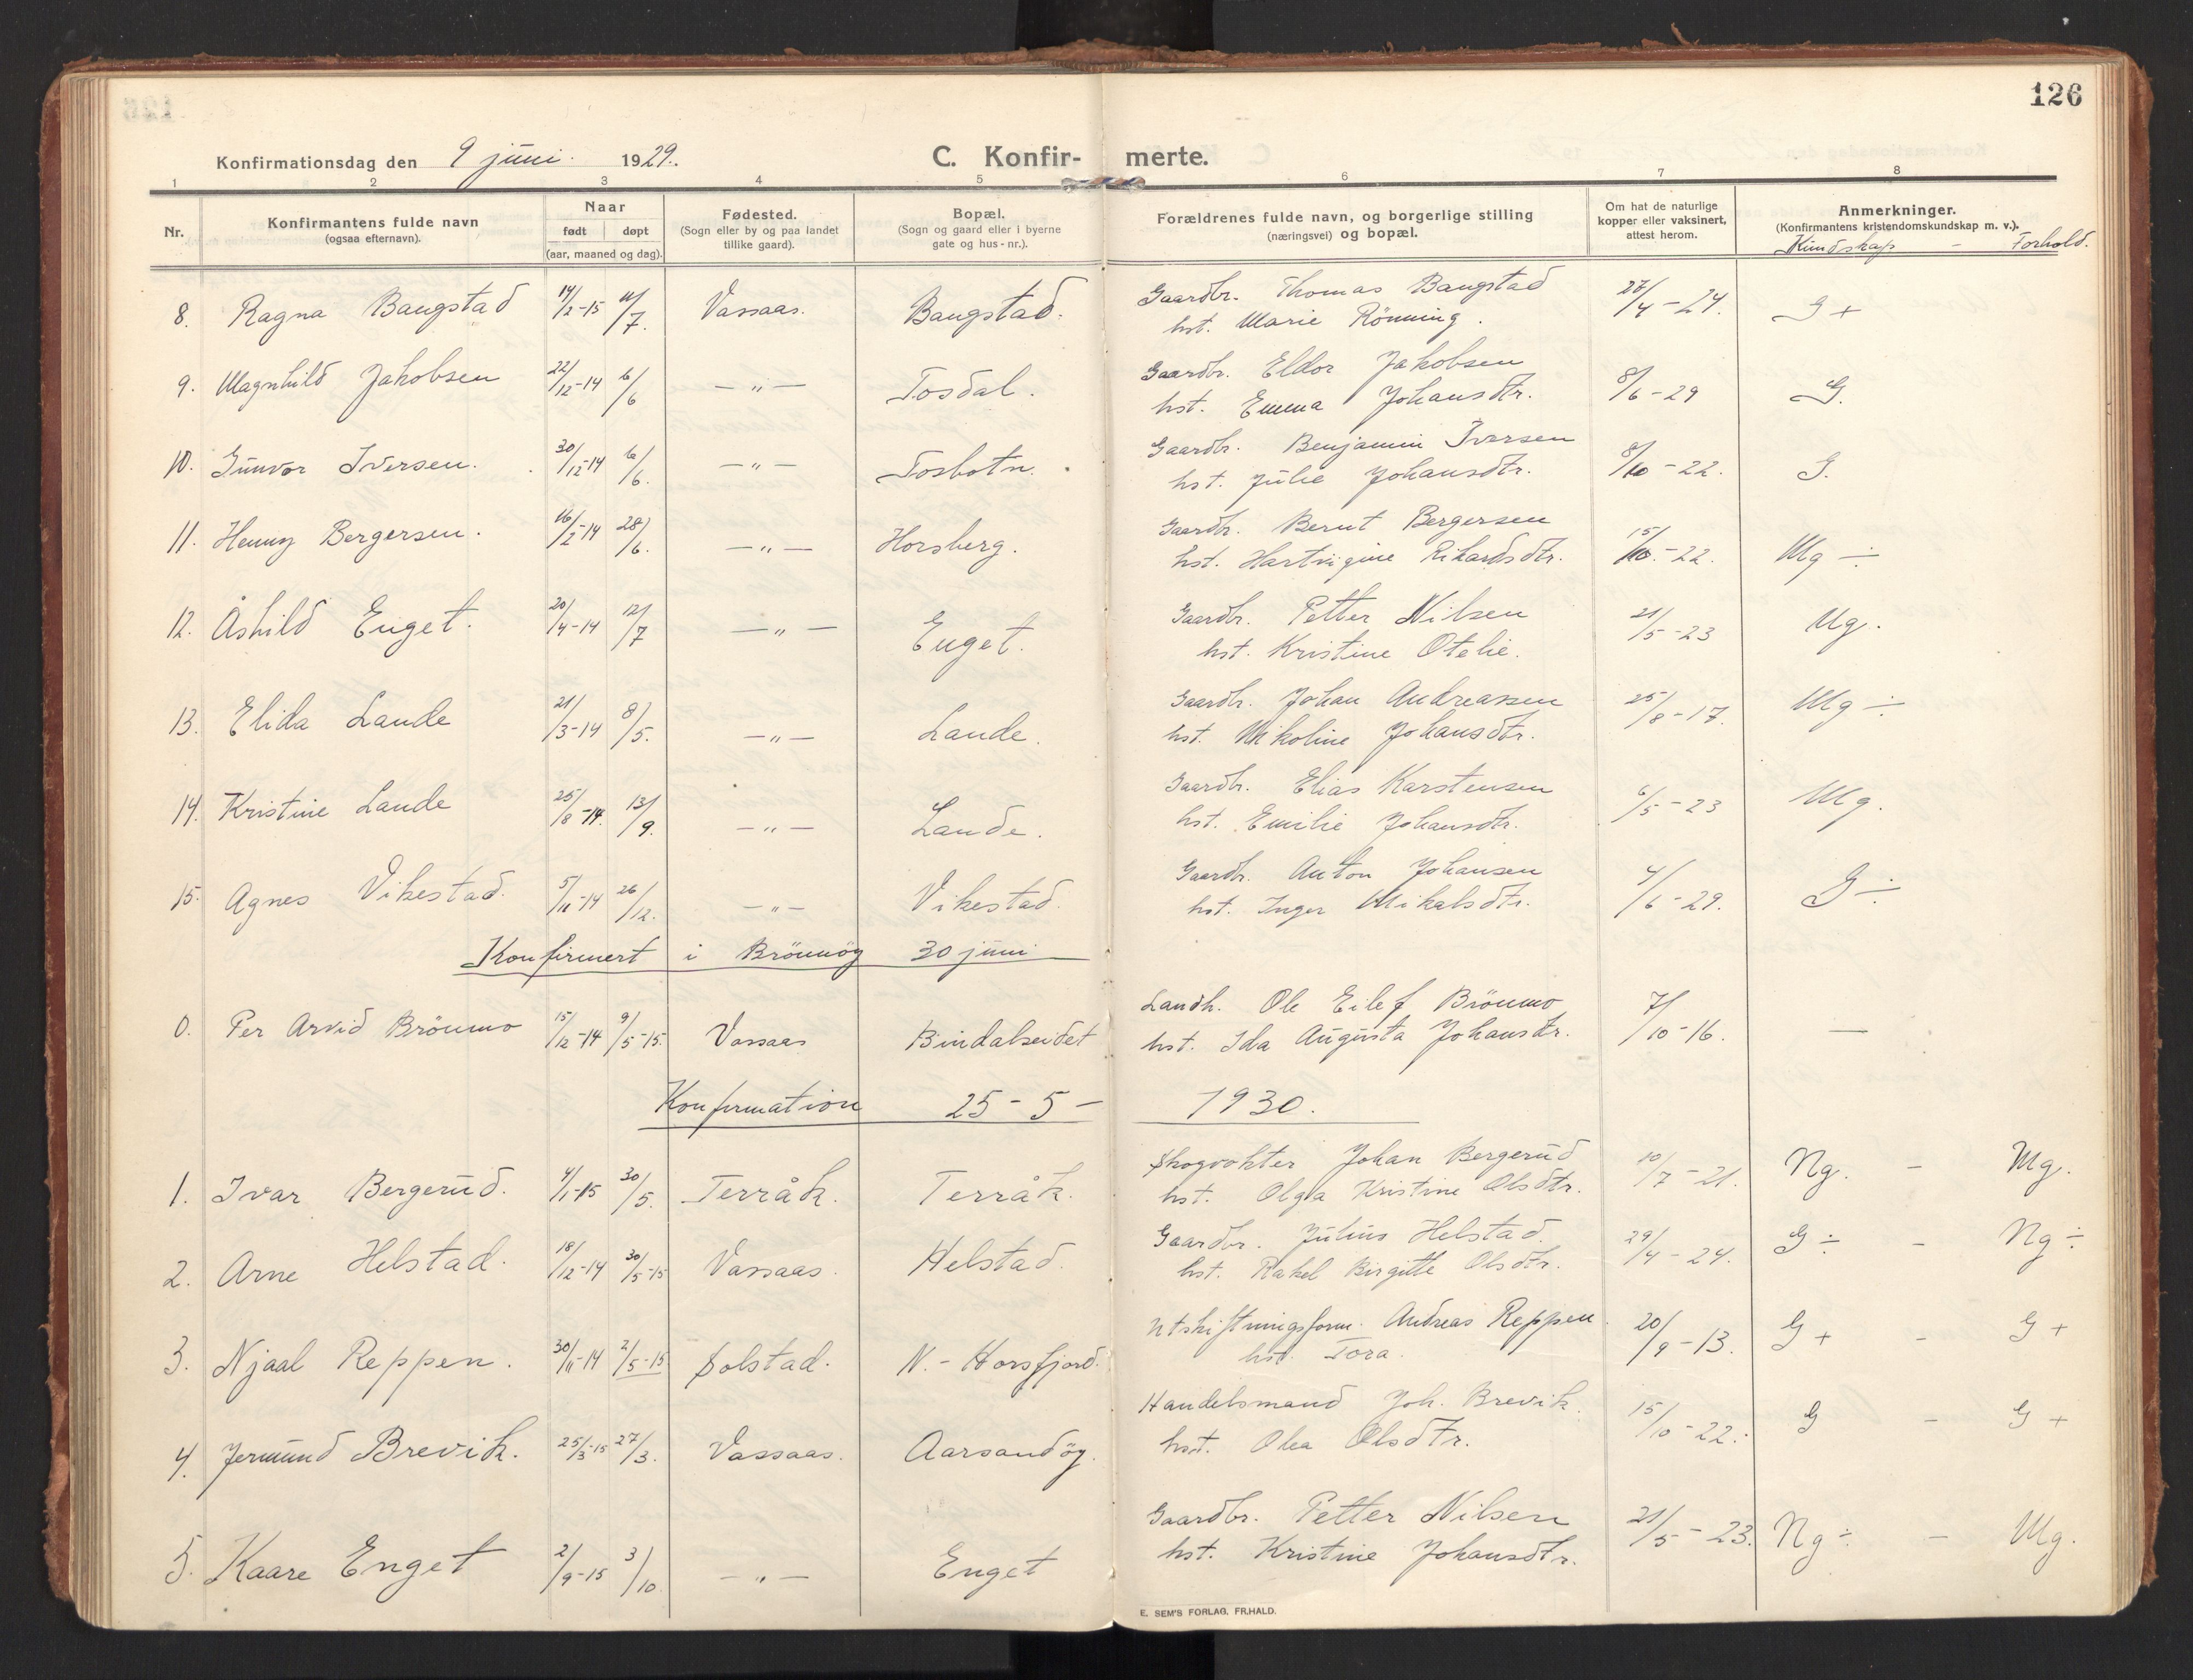 126
Konfirmationsdag den 9 juni. 1929.
C. Konfir- merte.
1 2 3 4 5 6 7 8
Nr.
Konfirmantens fulde navn
(ogsaa efternavn).
Naar
født døpt
(aar, maaned og dag).
Fødested.
(Sogn eller by og paa landet
tillike gaard).
Bopæl.
(Sogn og gaard eller i byerne
gate og hus-nr.).
Forældrenes fulde navn, og borgerlige stilling
(næringsvei) og bopæl.
Om hat de naturlige
kopper eller vaksinert,
attest herom.
Anmerkninger.
(Konfirmantens kristendomskundskap m. v.).
Kundskap - Forhold.
8. Ragna Bangstad 14/2-15 11/7. Vassaas. Bangstad. Gaardbr. Thomas Bangstad 27/4-24. G +
hst. Marie Rönning.
9. Magnhild Jakobsen 22/12-14 6/6 -"- Tosdal. Gaardbr. Eldor Jakobsen 8/6-29 G.
hst. Emma Johansdtr.
10. Gunvor Iversen. 30/12-14 6/6. -"- Tosbotn. Gaardbr. Benjamin Iversen 8/10-22. G.
hst. Julie Johansdtr.
11. Henny Bergersen. 16/2-14 28/6. -"- Horsberg. Gaardbr. Bernt Bergersen 15/10-22. Mg ÷
hst. Hartvigine Rikardsdtr.
12. Åshild Enget. 20/4-14 12/7 -"- Enget. Gaardbr. Petter Nilsen 21/5-23 Mg.
hst. Kristine Otelie.
13. Elida Lande 21/3-14 8/5. -"- Lande. Gaardbr. Johan Andreassen 25/8-17. Mg ÷
hst. Nikoline Johansdtr.
14. Kristine Lande 25/8-14. 13/9. -"- Lande. Gaardbr. Elias Karstensen 6/5-23 Mg.
hst. Emilie Johansdtr.
15. Agnes Vikestad. 5/11-14 26/12. -"- Vikestad. Gaardbr. Anton Johansen 4/6-29. G ÷
hst. Inger Mikalsdtr.
Konfirmert i Brönnöy 30 juni
0. Per Arvid Brönmo 15/12-14 9/5-15. Vassaas Bindalseidet Landh. Ole Eilef Brönmo 7/10-16. -
hst. Ida Augusta Johansdtr.
Konfirmation 25-5- 1930.
1. Ivar Bergerud. 4/1-15 30/5. Terråk. Terråk. Skogvokter Johan Bergerud 10/7-21. Ng. - Mg.
hst. Olga Kristine Olsdtr.
2. Arne Helstad. 18/12-14 30/5-15 Vassaas. Helstad. Gaardbr. Julius Helstad. 29/4-24. G ÷ - Ng ÷
hst. Rakel Birgitte Olsdtr.
3. Njaal Reppen. 30/11-14 2/5-15 Solstad. N.-Horsfjord. Utskiftningsform. Andreas Reppen. 20/9-13. G + - G +
hst. Tora.
4. Jermund Brevik. 25/3-15 27/3. Vassaas. Aarsandöy. Handelsmand Joh. Brevik. 15/10-22. G - G +
hst. Olea Olsdtr.
5. Kaare Enget 2/9-15 3/10. -"- Enget Gaardbr. Petter Nilsen 21/5-23. Ng ÷ - Mg.
hst. Kristine Johansdtr.
E. SEM'S FORLAG, FR.HALD.